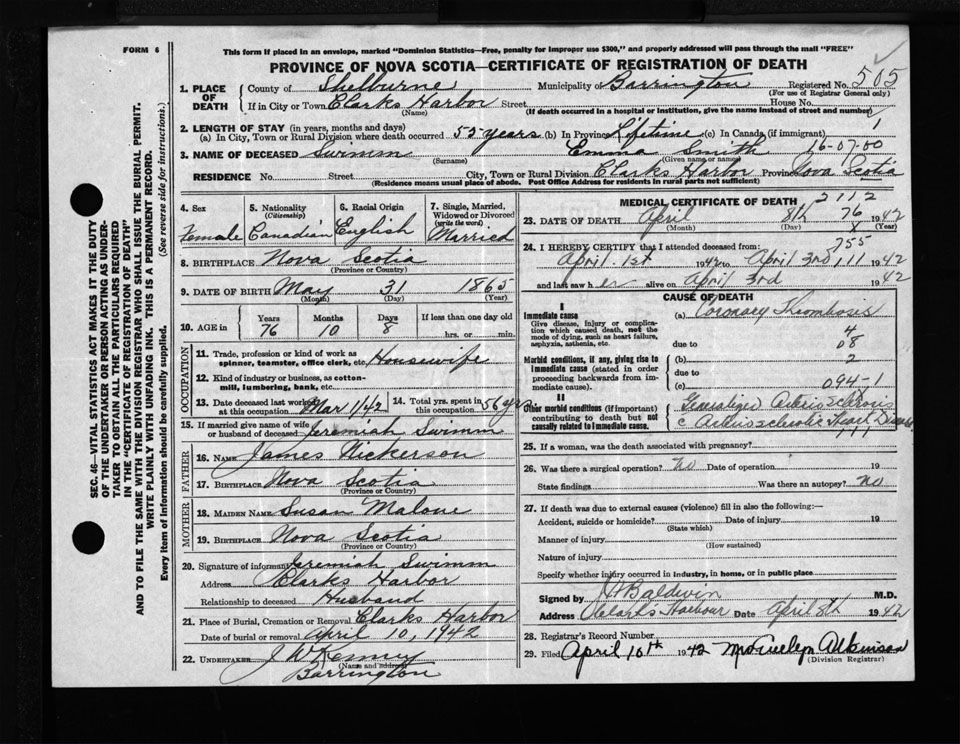 FORM 6
This form if placed in an envelope, marked "Dominion Statistics—Free, penalty for improper use $300," and properly addressed will pass through the mail "FREE"
PROVINCE OF NOVA SCOTIA—CERTIFICATE OF REGISTRATION OF DEATH
505
1. PLACE OF DEATH County of Shelburne Municipality of Barrington Registered No.
(For use of Registrar General only)
If in City or Town Clarks Harbor Street House No.
(Name) (If death occurred in a hospital or institution, give the name instead of street and number)
1
2. LENGTH OF STAY (in years, months and days)
(a) In City, Town or Rural Division where death occurred 55 years (b) In Province Lifetime (c) In Canada (if immigrant)
3. NAME OF DECEASED Swimm Emma Smith 16-07-00
(Surname) (Given name or names)
RESIDENCE No. Street City, Town or Rural Division Clarks Harbor Province Nova Scotia
(Residence means usual place of abode. Post Office Address for residents in rural parts not sufficient)
SEC. 46—VITAL STATISTICS ACT MAKES IT THE DUTY
OF THE UNDERTAKER OR PERSON ACTING AS UNDER-
TAKER TO OBTAIN ALL THE PARTICULARS REQUIRED
IN THE "CERTIFICATE OF REGISTRATION OF DEATH"
AND TO FILE THE SAME WITH THE DIVISION REGISTRAR WHO SHALL ISSUE THE BURIAL PERMIT.
WRITE PLAINLY WITH UNFADING INK. THIS IS A PERMANENT RECORD.
Every item of information should be carefully supplied. (See reverse side for instructions.)
4. Sex 5. Nationality (Citizenship) 6. Racial Origin 7. Single, Married, Widowed or Divorced (write the word)
Female Canadian English Married
8. BIRTHPLACE Nova Scotia
(Province or Country)
9. DATE OF BIRTH May 31 1865
(Month) (Day) (Year)
10. AGE in Years Months Days If less than one day old
76 10 8 hrs. or min.
OCCUPATION
11. Trade, profession or kind of work as spinner, teamster, office clerk, etc. Housewife
12. Kind of industry or business, as cotton-mill, lumbering, bank, etc.
13. Date deceased last worked at this occupation Mar 1/42 14. Total yrs. spent in this occupation 56 yrs.
15. If married give name of wife or husband of deceased Jeremiah Swimm
FATHER
16. NAME James Nickerson
17. BIRTHPLACE Nova Scotia
(Province or Country)
MOTHER
18. MAIDEN NAME Susan Malone
19. BIRTHPLACE Nova Scotia
(Province or Country)
20. Signature of informant Jeremiah Swimm
Address Clarks Harbor
Relationship to deceased Husband
21. Place of Burial, Cremation or Removal Clarks Harbor
Date of burial or removal April 10, 1942
22. UNDERTAKER J W Kenney
(Name and address)
Barrington
MEDICAL CERTIFICATE OF DEATH 2112
23. DATE OF DEATH April 8th 76 1942
(Month) (Day) 8 (Year)
24. I HEREBY CERTIFY that I attended deceased from: 755
April 1st 1942 to April 3rd 111 1942
and last saw h er alive on April 3rd 1942
CAUSE OF DEATH
I
Immediate cause (a) Coronary Thrombosis
Give disease, injury or complication which caused death, not the mode of dying, such as heart failure, asphyxia, asthenia, etc.
4
due to 08
Morbid conditions, if any, giving rise to immediate cause (stated in order proceeding backwards from immediate cause). (b) 2
due to
(c) 094-1
II
Other morbid conditions (if important) contributing to death but not causally related to immediate cause. Generalized Arteriosclerosis
c Arteriosclerotic Heart Disease
111
25. If a woman, was the death associated with pregnancy?
26. Was there a surgical operation? No Date of operation 19
State findings Was there an autopsy? No
27. If death was due to external causes (violence) fill in also the following:—
Accident, suicide or homicide? Date of injury 19
(State which)
Manner of injury
(How sustained)
Nature of injury
Specify whether injury occurred in industry, in home, or in public place
Signed by Baldwin M.D.
Address Clarks Harbour Date April 8th 1942
28. Registrar's Record Number
29. Filed April 10th 1942 Mrs Evelyn Atkinson
(Division Registrar)